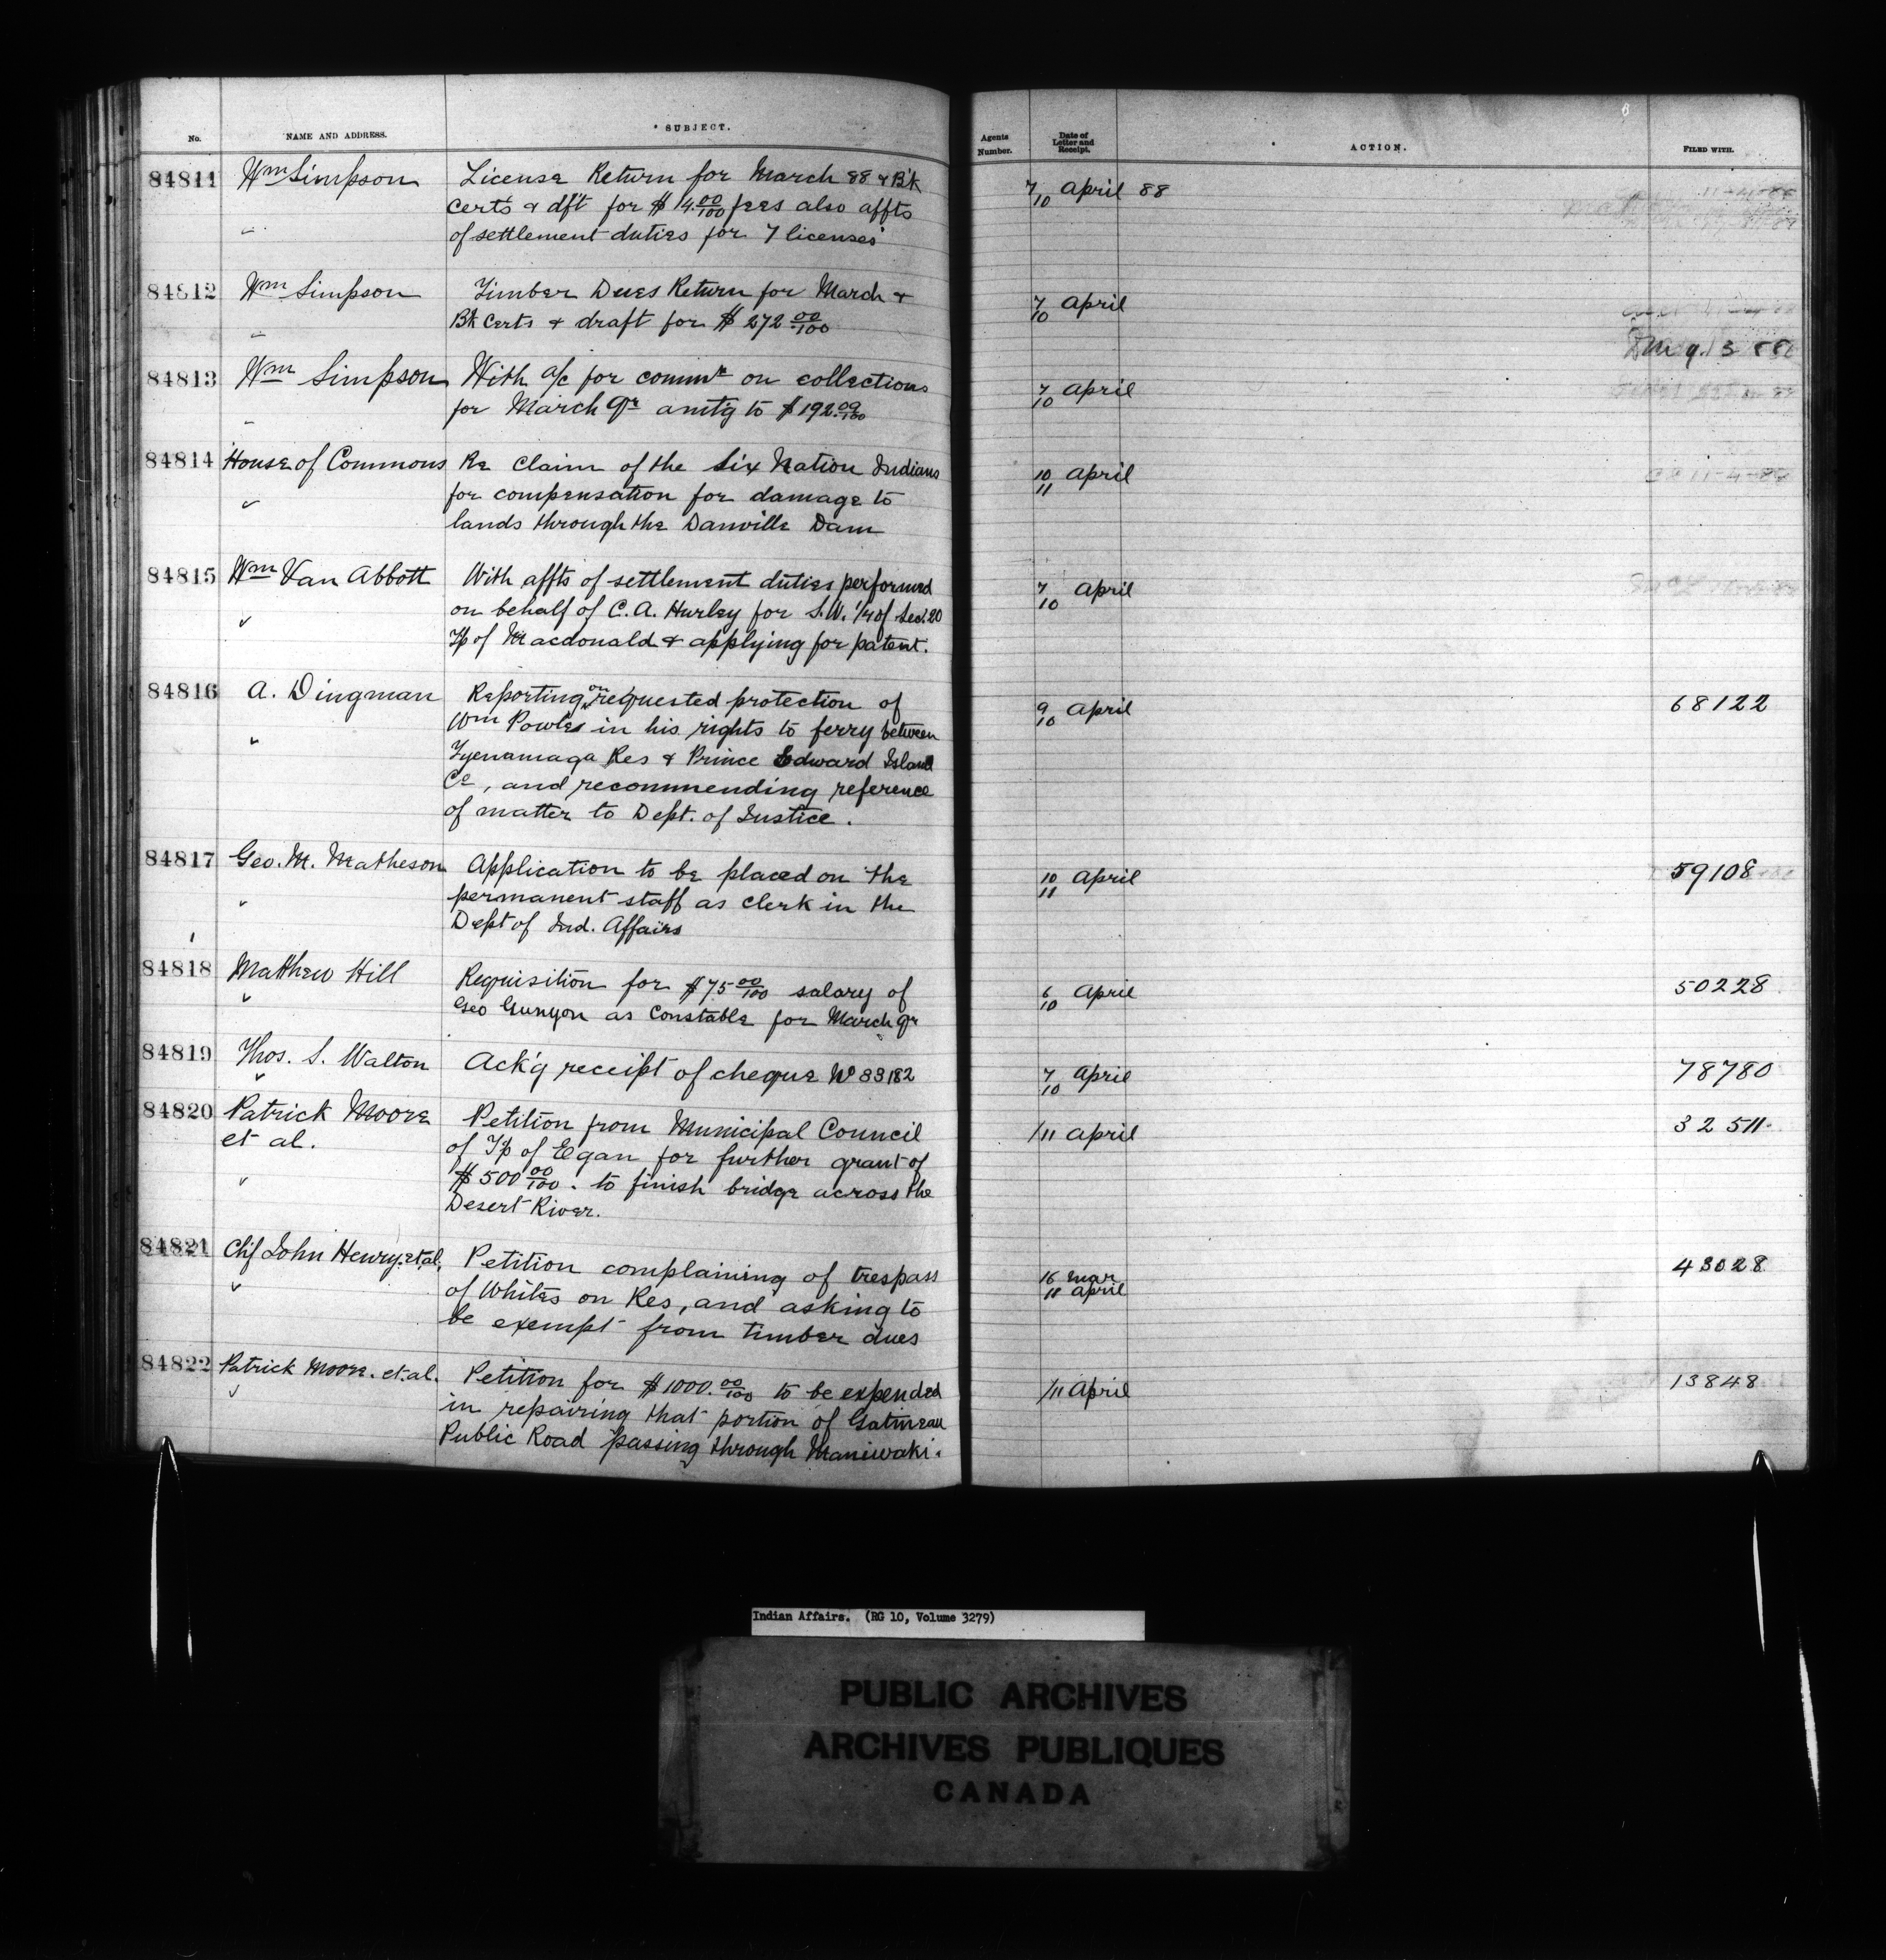 No. NAME AND ADDRESS. SUBJECT. Agents Number. Date of Letter and Receipt. ACTION. FILED WITH.
84811 Wm Simpson License Return for March 88 & Bk 7/10 April 88
Certs & dft for $14.00/100 fees also affts
of settlement duties for 7 licenses
84812 Wm Simpson Timber Dues Return for March & 7/10 April
Bk Certs & draft for $272 00/100
84813 Wm Simpson With a/c for commn on collections 7/10 April
for March Qr amt'g to $192.09/100
84814 House of Commons Re Claim of the Six Nation Indians 10/11 April
for compensation for damage to
lands through the Danville Dam
84815 Wm Van Abbott With affts of settlement duties performed 7/10 April
on behalf of C. A. Hurley for S.W. 1/4 of Sec. 20
Tp of Macdonald & applying for patent.
84816 A. Dingman Reporting on requested protection of 9/10 April 68122
Wm Powles in his rights to ferry between
Tyenamaga Res & Prince Edward Island
Co, and recommending reference
of matter to Dept. of Justice.
84817 Geo. M. Matheson Application to be placed on the 10/11 April 59108
permanent staff as clerk in the
Dept of Ind. Affairs
84818 Matthew Hill Requisition for $75 00/100 salary of 6/10 April 50228
Geo Gunyon as Constable for March qr
84819 Thos. S. Walton Ack'g receipt of cheque No 83182 7/10 April 78780
84820 Patrick Moore Petition from Municipal Council /11 April 32511
et al. of Tp of Egan for further grant of
$500 00/100. to finish bridge across the
Desert River.
84821 Chf John Henry et al. Petition complaining of trespass 16 Mar 43028
of Whites on Res, and asking to 11 April
be exempt from timber dues
84822 Patrick Moore. et. al. Petition for $1000.00/100 to be expended /11 April 13848
in repairing that portion of Gatineau
Public Road passing through Maniwaki.
Indian Affairs. (RG 10, Volume 3279)
PUBLIC ARCHIVES
ARCHIVES PUBLIQUES
CANADA